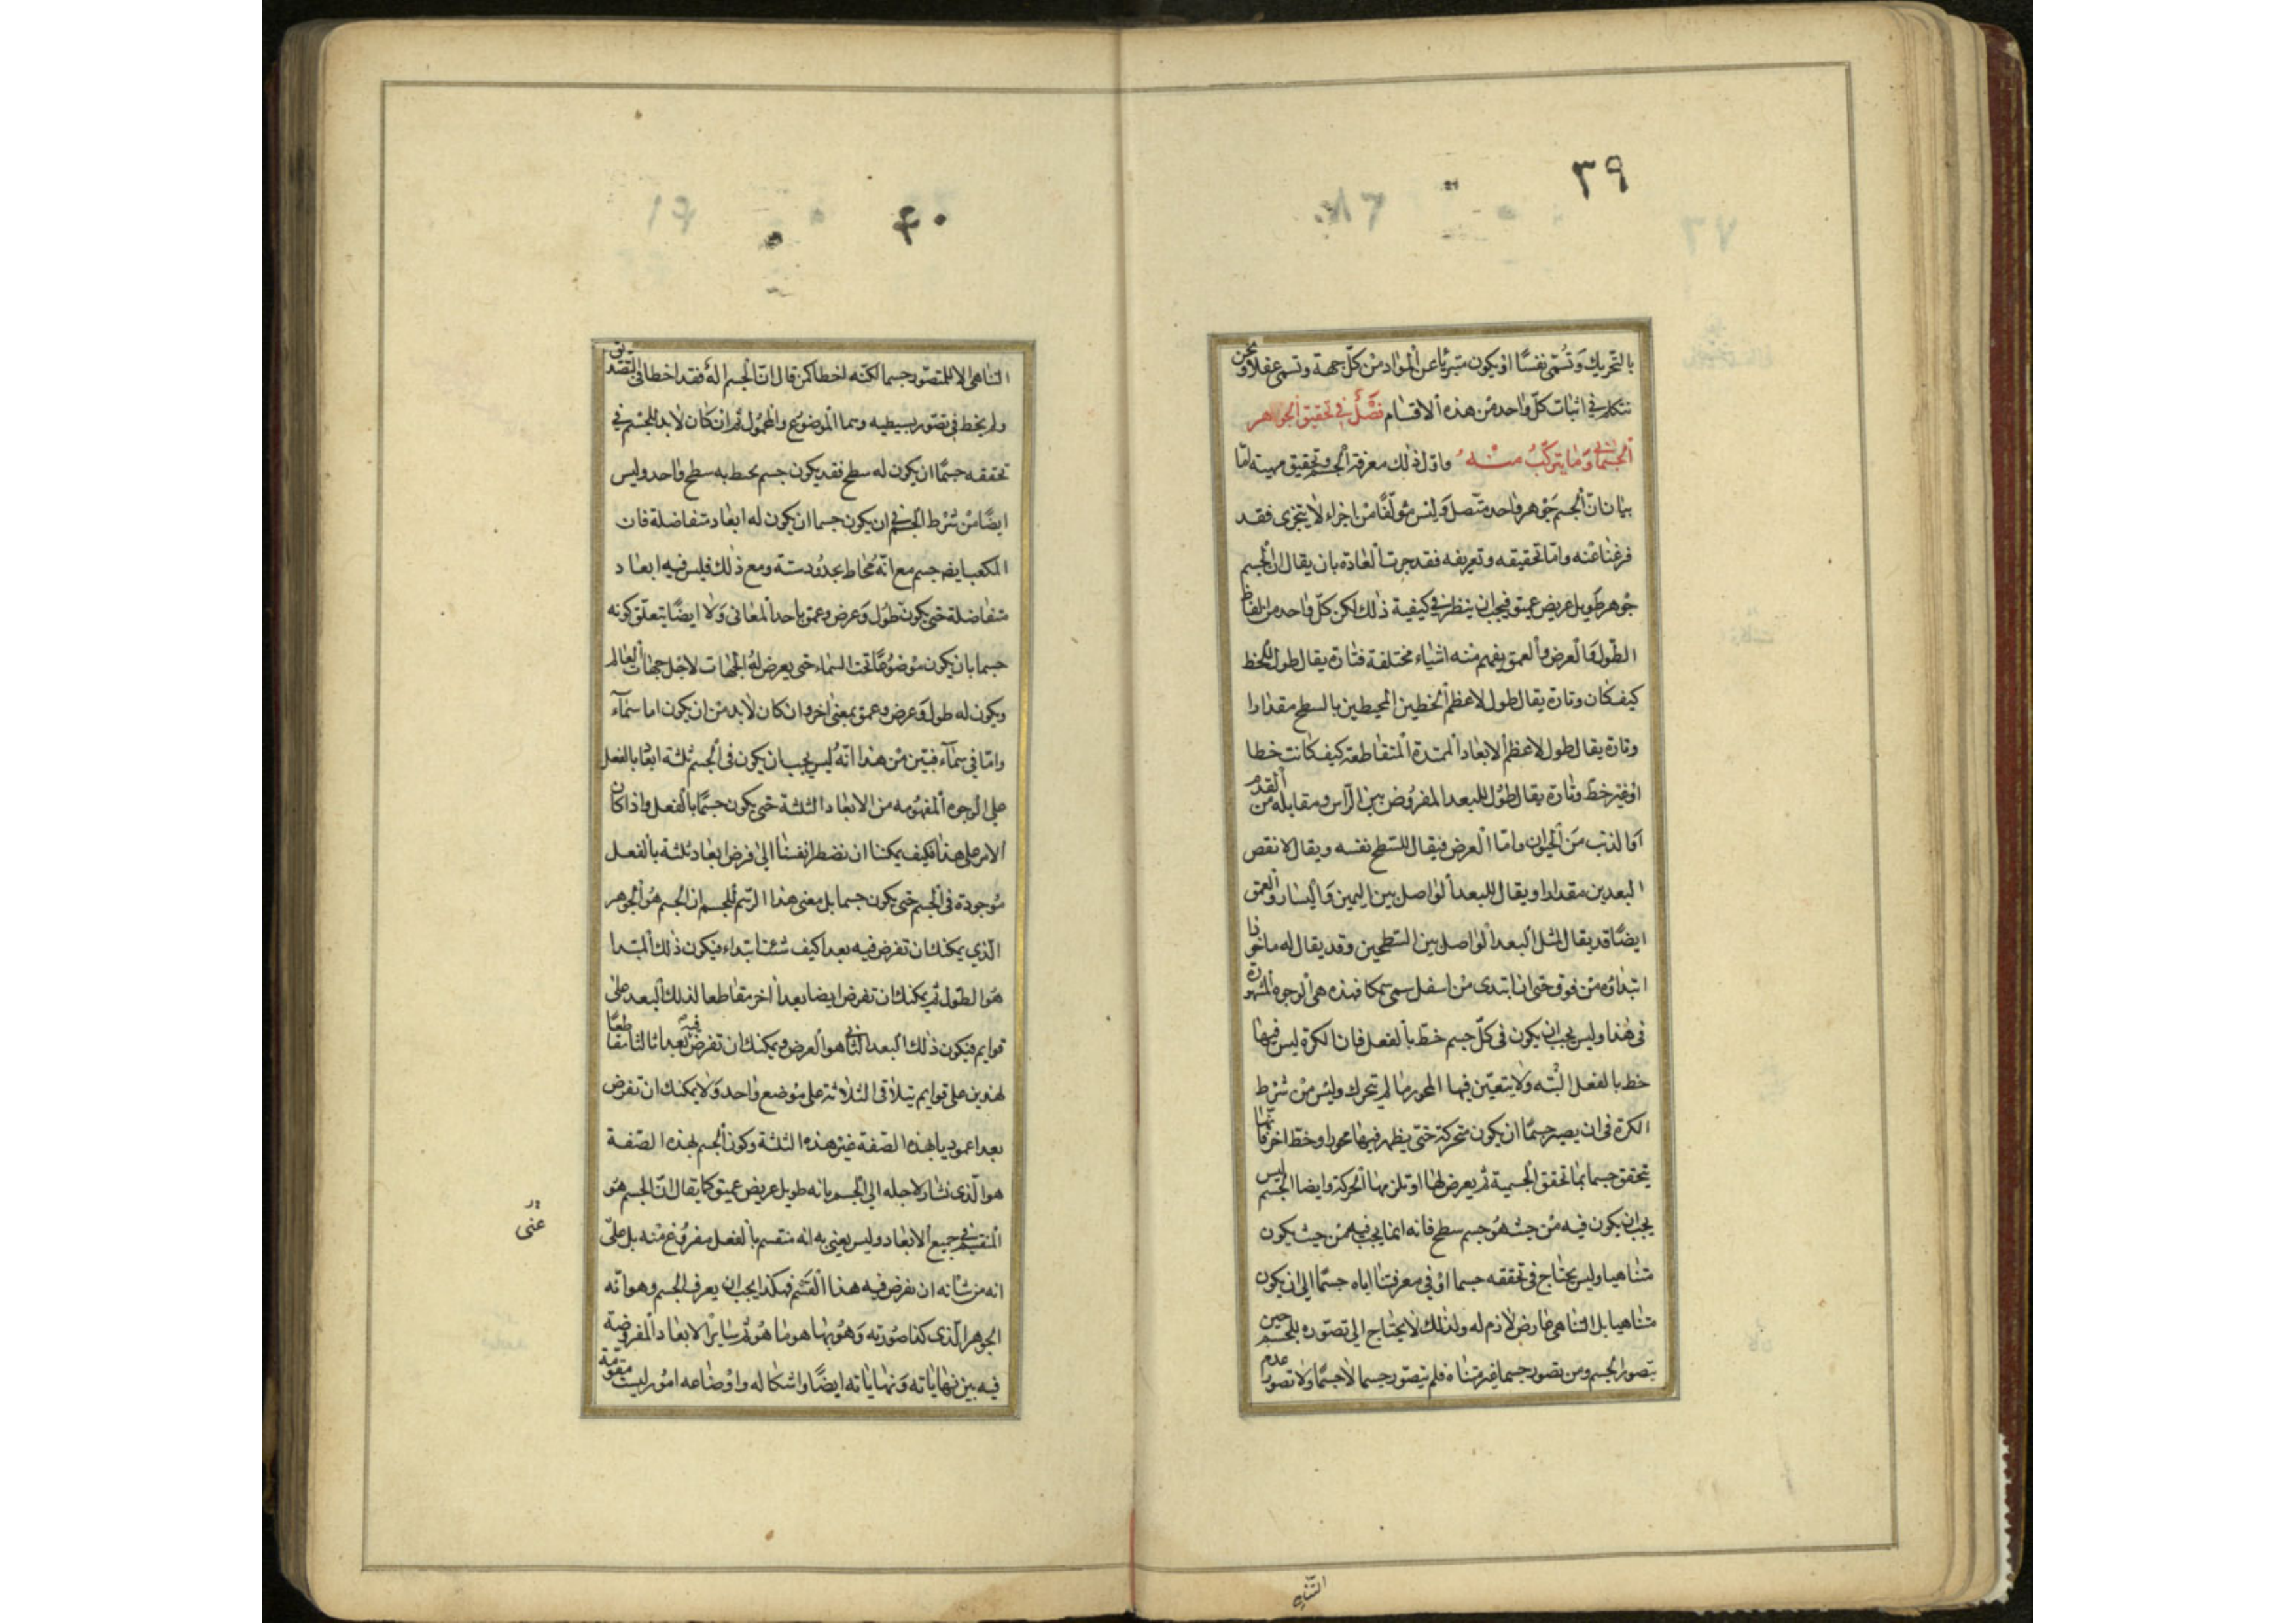 ٣٩
بالتحريك وتسمى نفسا او يكون متبرئا عن المواد من كل جهة وتسمى عقلا ونحن
نتكلم في اثبات كل واحد من هذه الاقسام فصل في تحقيق الجوهر
الجسماني وما يتركب منه واول ذلك معرفة الجسم وتحقيق مهيته اما
بيان ان الجسم جوهر واحد متصل وليس مؤلفا من اجزاء لا يتجزى فقد
فرغنا عنه واما تحقيقه وتعريفه فقد جرت العادة بان يقال ان الجسم
جوهر طويل عريض عميق فيجب ان ينظر في كيفية ذلك لكن كل واحد من الفاظ
الطول والعرض والعمق يفهم منه اشياء مختلفة فتارة يقال طول للخط
كيف كان وتارة يقال طول لاعظم الخطين المحيطين بالسطح مقدارا
وتارة يقال طول لاعظم الابعاد الممتدة المتقاطعة كيف كانت خطا
او غير خط وتارة يقال طول للبعد المفروض بين الراس ومقابله من القدم
او الذنب من الحيوان واما العرض فيقال للسطح نفسه ويقال لانقص
البعدين مقدارا ويقال للبعد الواصل بين اليمين واليسار والعمق
ايضا قد يقال لمثل البعد الواصل بين السطحين وقد يقال له ماخوذا
ابتداؤه من فوق حتى ان ابتدى من اسفل سمى سمكا فهذه هى الوجوه المشهورة
فى هذا وليس يجب ان يكون فى كل جسم خط بالفعل فان الكرة ليس فيها
خط بالفعل البته ولا يتعين فيها المحور ما لم يتحرك وليس من شرط
الكرة فى ان يصير جسما ان يكون متحركة حتى يظهر فيها محور او خط اخر فانها
يتحقق جسما بما تحقق الجسمية ثم يعرض لها او تلزمها الحركة وايضا الجسم ليس
يجب ان يكون فيه من حيث هو جسم سطح فانه انما يجب فيه من حيث يكون
متناهيا وليس يحتاج فى تحققه جسما او فى معرفتنا اياه جسما الى ان يكون
متناهيا بل التناهى عارض لازم له ولذلك لا يحتاج الى تصوره للجسم حين
يتصور الجسم ومن تصور جسما غير متناه فلم يتصور جسما لا جسما ولا تصور عدم
التناهى
٤٠
التناهى الا للمتصور جسما لكنه اخطا كمن قال ان الجسم اله فقد اخطا فى التصديق
ولم يخط فى تصور بسيطيه وهما الموضوع والمحمول ثم ان كان لابد للجسم فى
تحققه جسما ان يكون له سطح فقد يكون جسم يحيط به سطح واحد وليس
ايضا من شرط الجسم فى ان يكون جسما ان يكون له ابعاد متفاضلة فان
المكعب ايضا جسم مع انه محاط بحدود ستة ومع ذلك فليس فيه ابعاد
متفاضلة حتى يكون طول وعرض وعمق باحد المعانى ولا ايضا يتعلق كونه
جسما بان يكون موضوعا تحت السماء حتى يعرض له الجهات لاجل جهات العالم
ويكون له طول وعرض وعمق بمعنى اخر وان كان لابد من ان يكون اما سماء
واما فى سماء فبين من هذا انه ليس يجب ان يكون فى الجسم ثلثة ابعاد بالفعل
على الوجوه المفهومه من الابعاد الثلثة حتى يكون جسما بالفعل واذا كان
الامر على هذا فكيف يمكننا ان نضطر انفسنا الى فرض ابعاد ثلثة بالفعل
موجودة فى الجسم حتى يكون جسما بل معنى هذا الرسم للجسم ان الجسم هو الجوهر
الذي يمكنك ان تفرض فيه بعدا كيف شئت ابتداء فيكون ذلك المبتدا
هو الطول ثم يمكنك ان تفرض ايضا بعدا اخر مقاطعا لذلك البعد على
قوايم فيكون ذلك البعد الثانى هو العرض ويمكنك ان تفرض فيه بعدا ثالثا مقاطعا
لهذين على قوايم يتلاقى الثلاثة على موضع واحد ولا يمكنك ان تفرض
بعدا عموديا بهذه الصفة غير هذه الثلثة وكون الجسم بهذه الصفة
هو الذى نشار لاجله الى الجسم بانه طويل عريض عميق كما يقال ان الجسم هو
المنقسم فى جميع الابعاد وليس يعنى به انه منقسم بالفعل مفروغ منه بل على
انه من شانه ان نفرض فيه هذا القسم فهكذا يجب ان يعرف الجسم وهو انه
الجوهر الذى كذا صورته وهو بها هو ما هو ثم ساير الابعاد المفروضة
فيه بين نهاياته ونهاياته ايضا واشكاله واوضاعه امور ليست مقومة